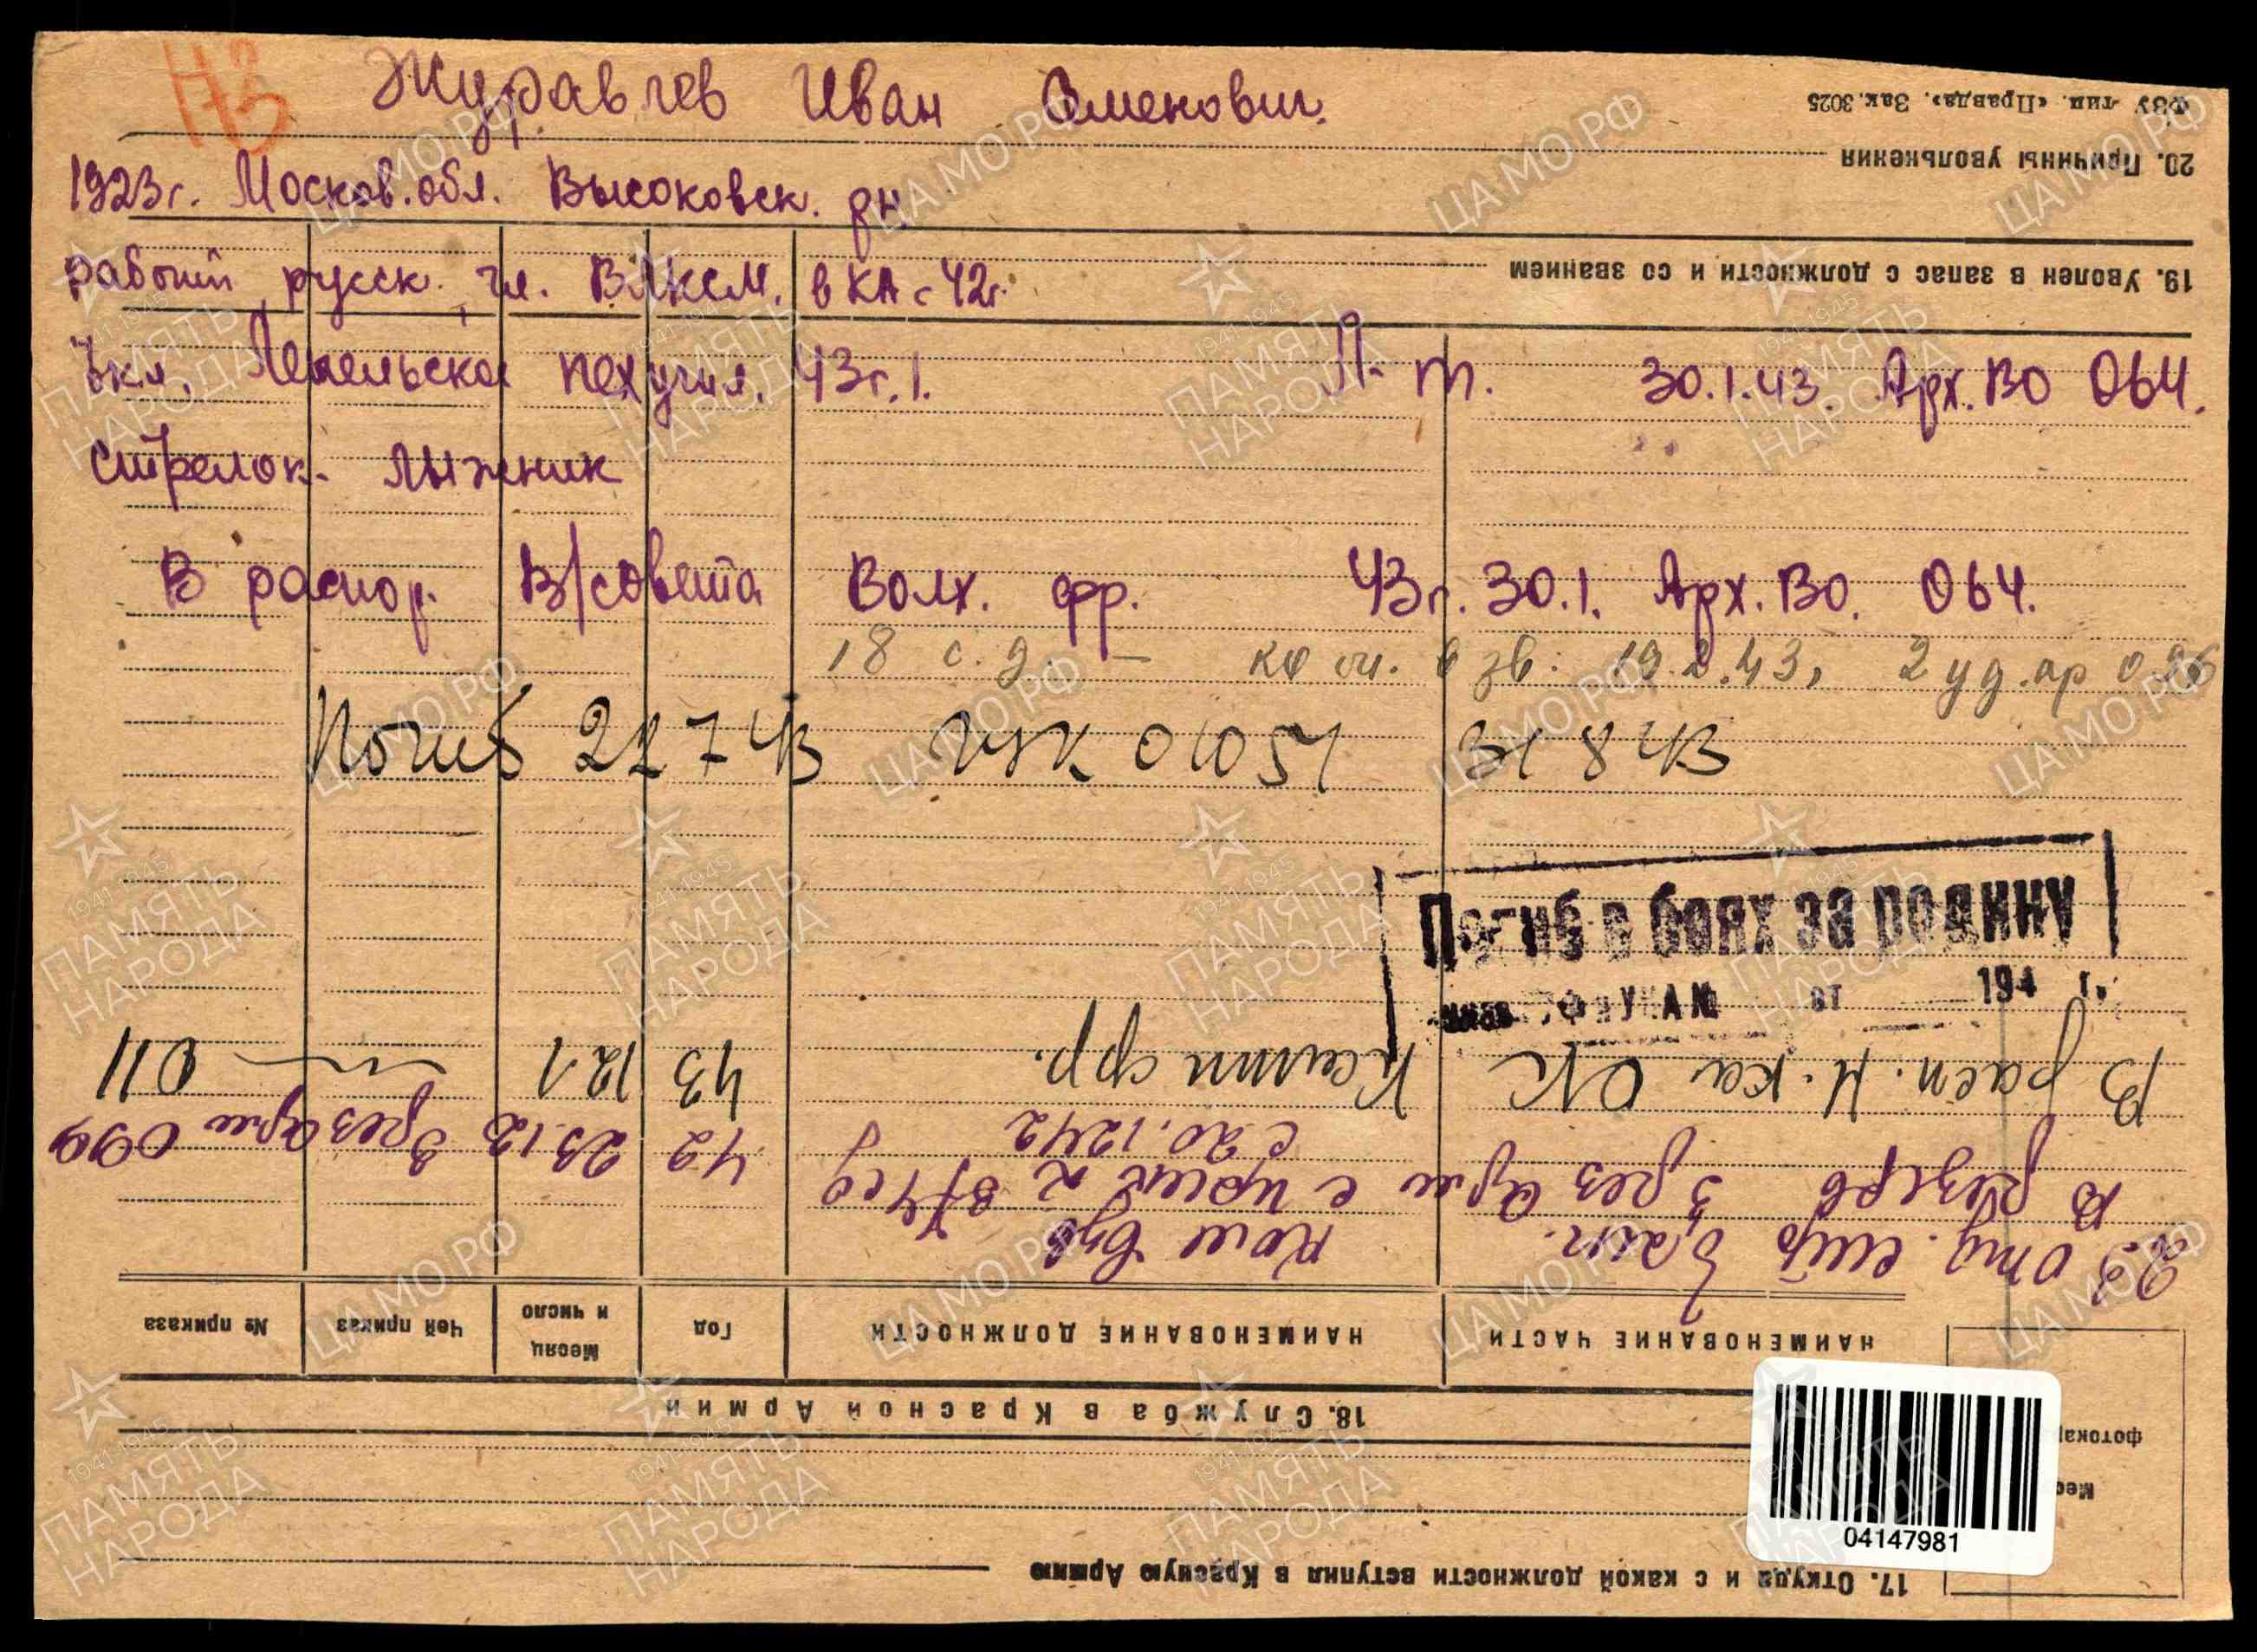 НЗ
Журавлев Иван Семенович.
1923 г. Москов. обл. Высоковск. рн
рабочий, русск. чл. ВЛКСМ. в КА с 42г.
Лепельское пех. учил. 43г. 1. Л-т. 30.1.43. Арх. ВО 064.
стрелок-лыжник
В распор. В/совета Волх. фр. 43г. 30.1. Арх. ВО. 064.
18 с.д. — ком. взв. 19.2.43, 2 уд. ар 026
Погиб 22 7 43 ГУК 01051 31 8 43
Погиб в боях за родину
от 194 г.
ФЗУ тип. «Правда». Зак. 3025
20. Причины увольнения
19. Уволен в запас с должности и со званием
17. Откуда и с какой должности вступил в Красную Армию
фотокар
Мес
18. Служба в Красной Армии
НАИМЕНОВАНИЕ ЧАСТИ
НАИМЕНОВАНИЕ ДОЛЖНОСТИ
Год
Месяц и число
Чей приказ
№ приказа
23 отд. стр
В резерв 3 рез арм 42 23.12 3 рез арм 099
с 20.12 42
В расп. Н-ка ОК Калин фр. 43 12 1 — 011
04147981
ЦАМО РФ
1941-1945
ПАМЯТЬ НАРОДА